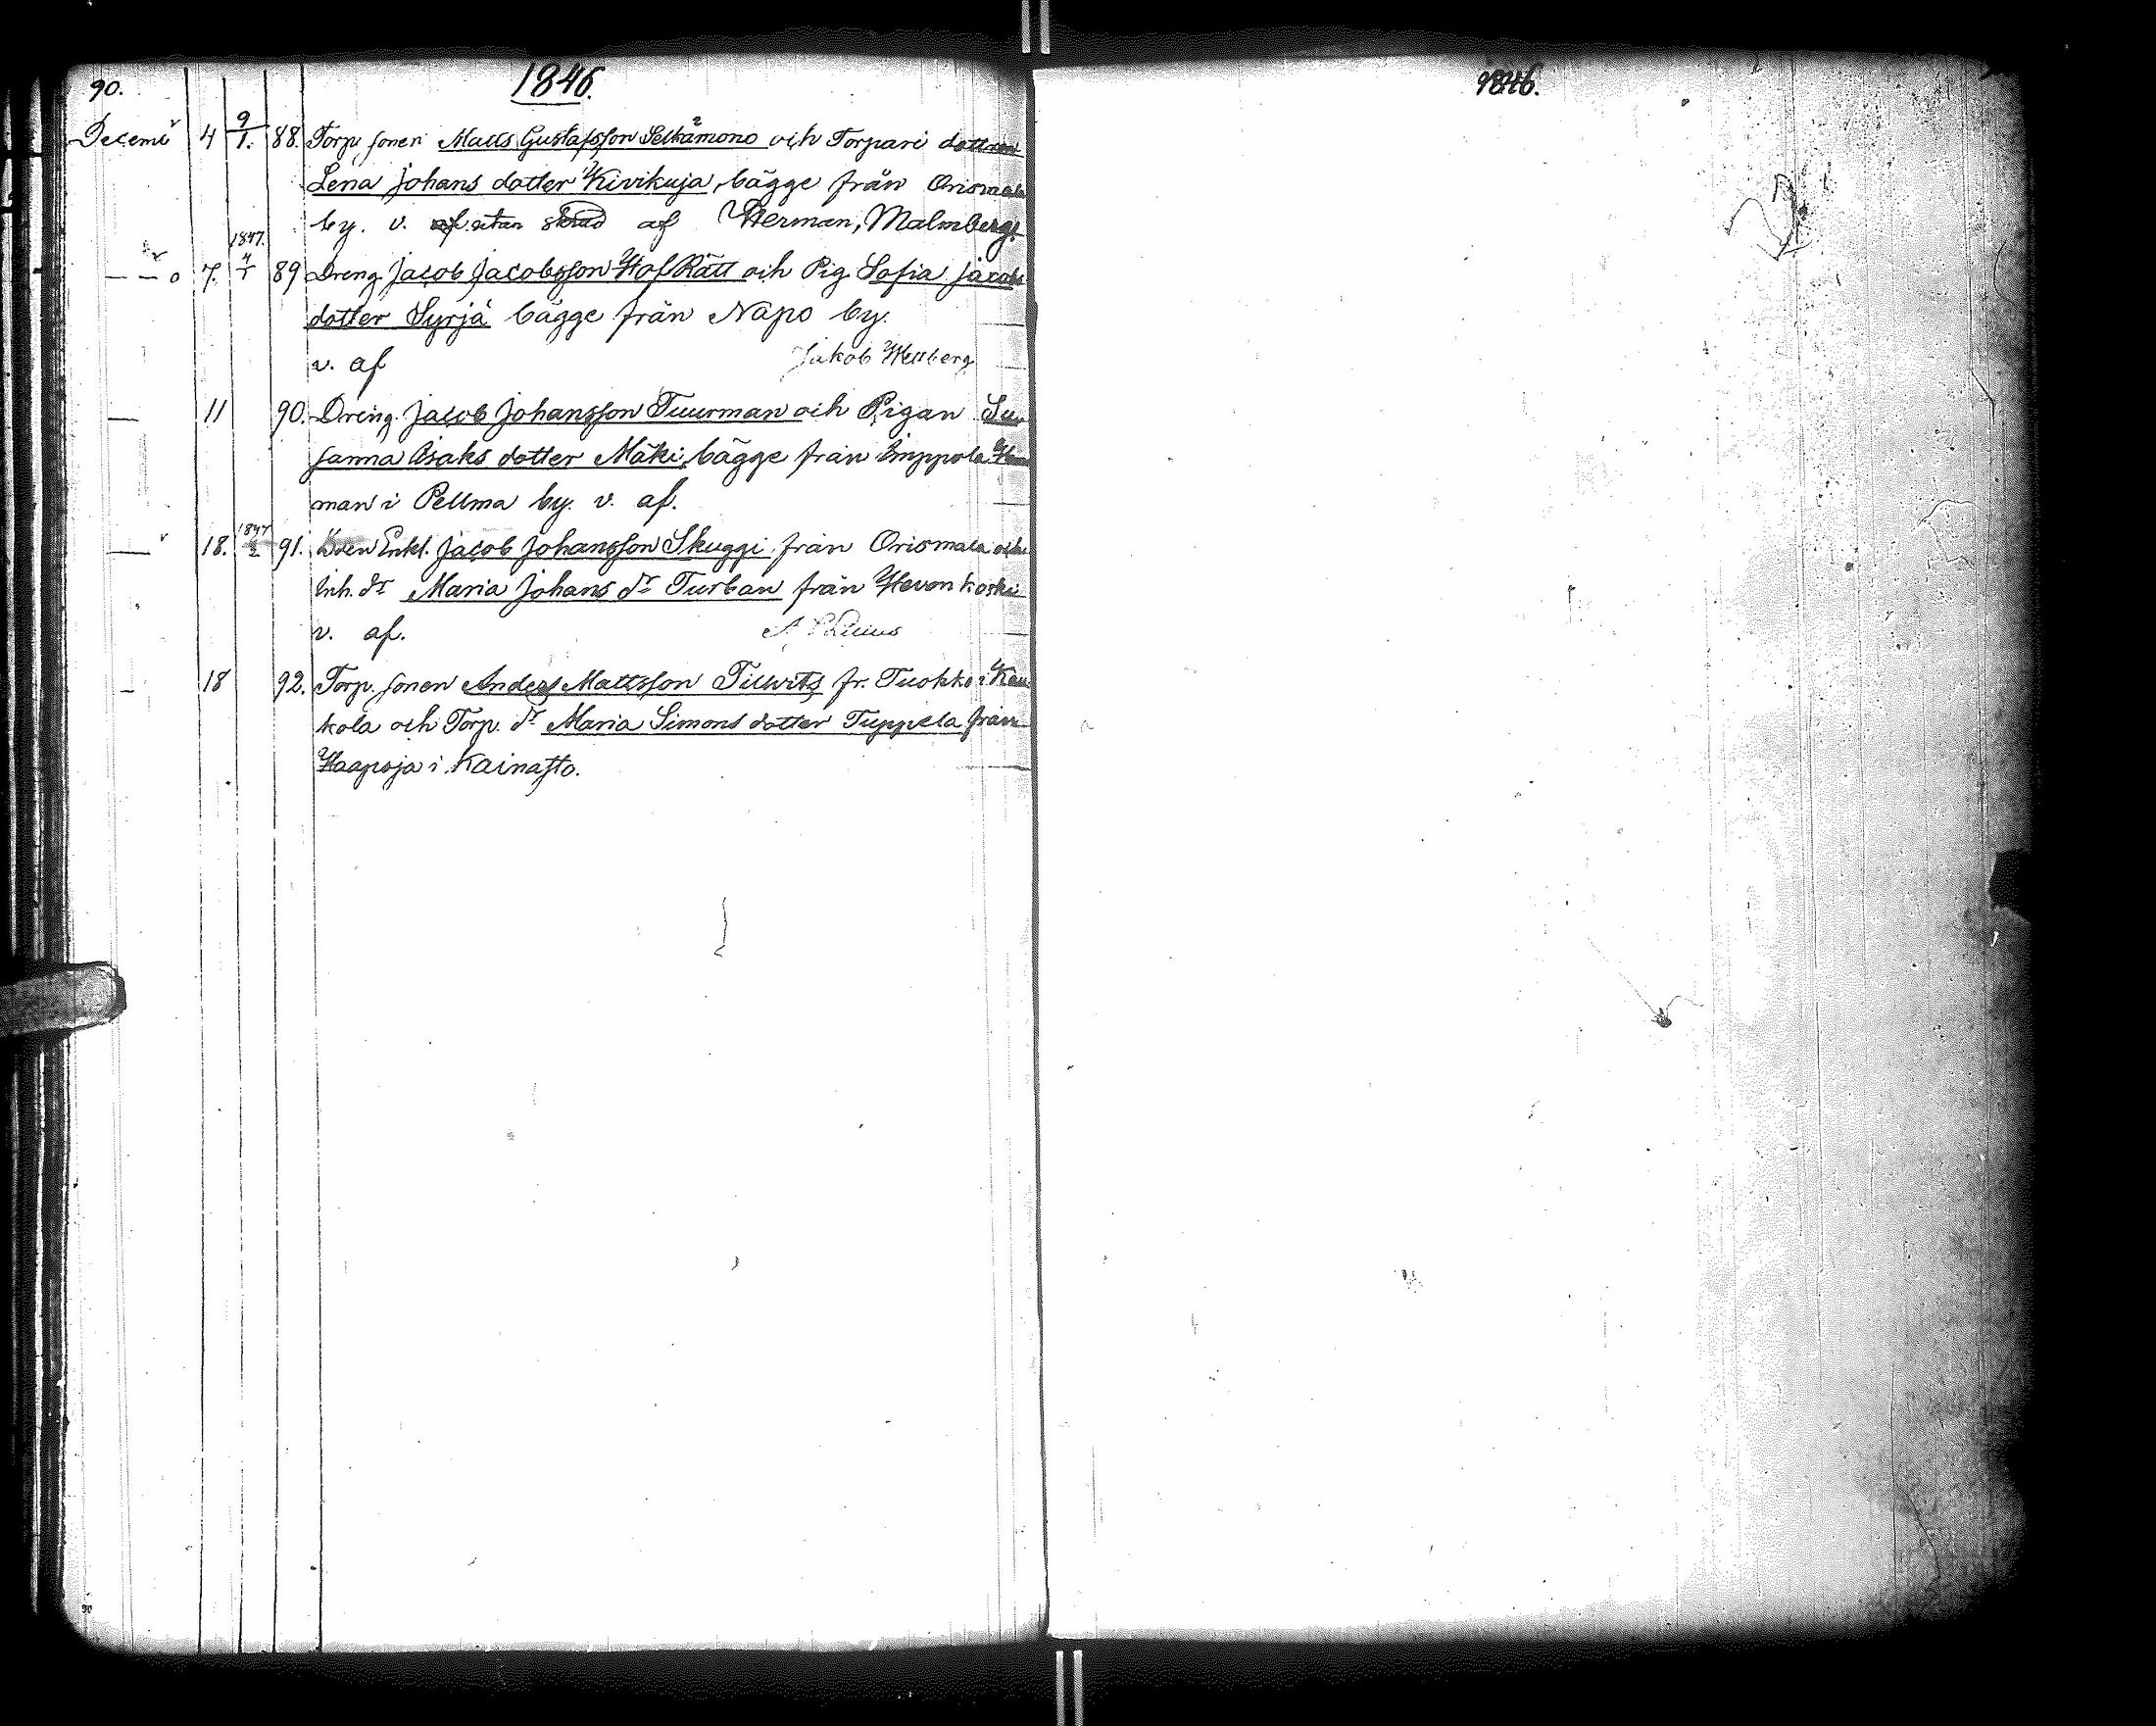 90.
1846.
Decemr 4 9/1. 88. Torp. sonen Matts Gustafsson Selkämono och Torpare dottren
Lena Johans dotter Kivikuja, bägge från Orismala
by. v. af Herman, Malmberg.
1847.
7. 4/1 89 Dreng Jacob Jacobsson Hof Rätt och Pig Sofia Jacobs
dotter Syrjä bägge från Napo by.
v. af Jakob Hellberg
— 11 90. Dreng. Jacob Johansson Tuurman och Pigan Su
sanna Isaks dotter Mäki, bägge från Imppola
man i Pellma by. v. af.
1847
— 18. 91. Enkl. Jacob Johansson Skuggi från Orismala och
Inh. dr Maria Johans dr Turban från Hevonkoski
v. af.
— 18 92. Torp. sonen Anders Mattsson Tilwits fr. Tuokko i Kau
kola och Torp. dr Maria Simons dotter Tuppela från
Haapoja i Kainasto.
1846.